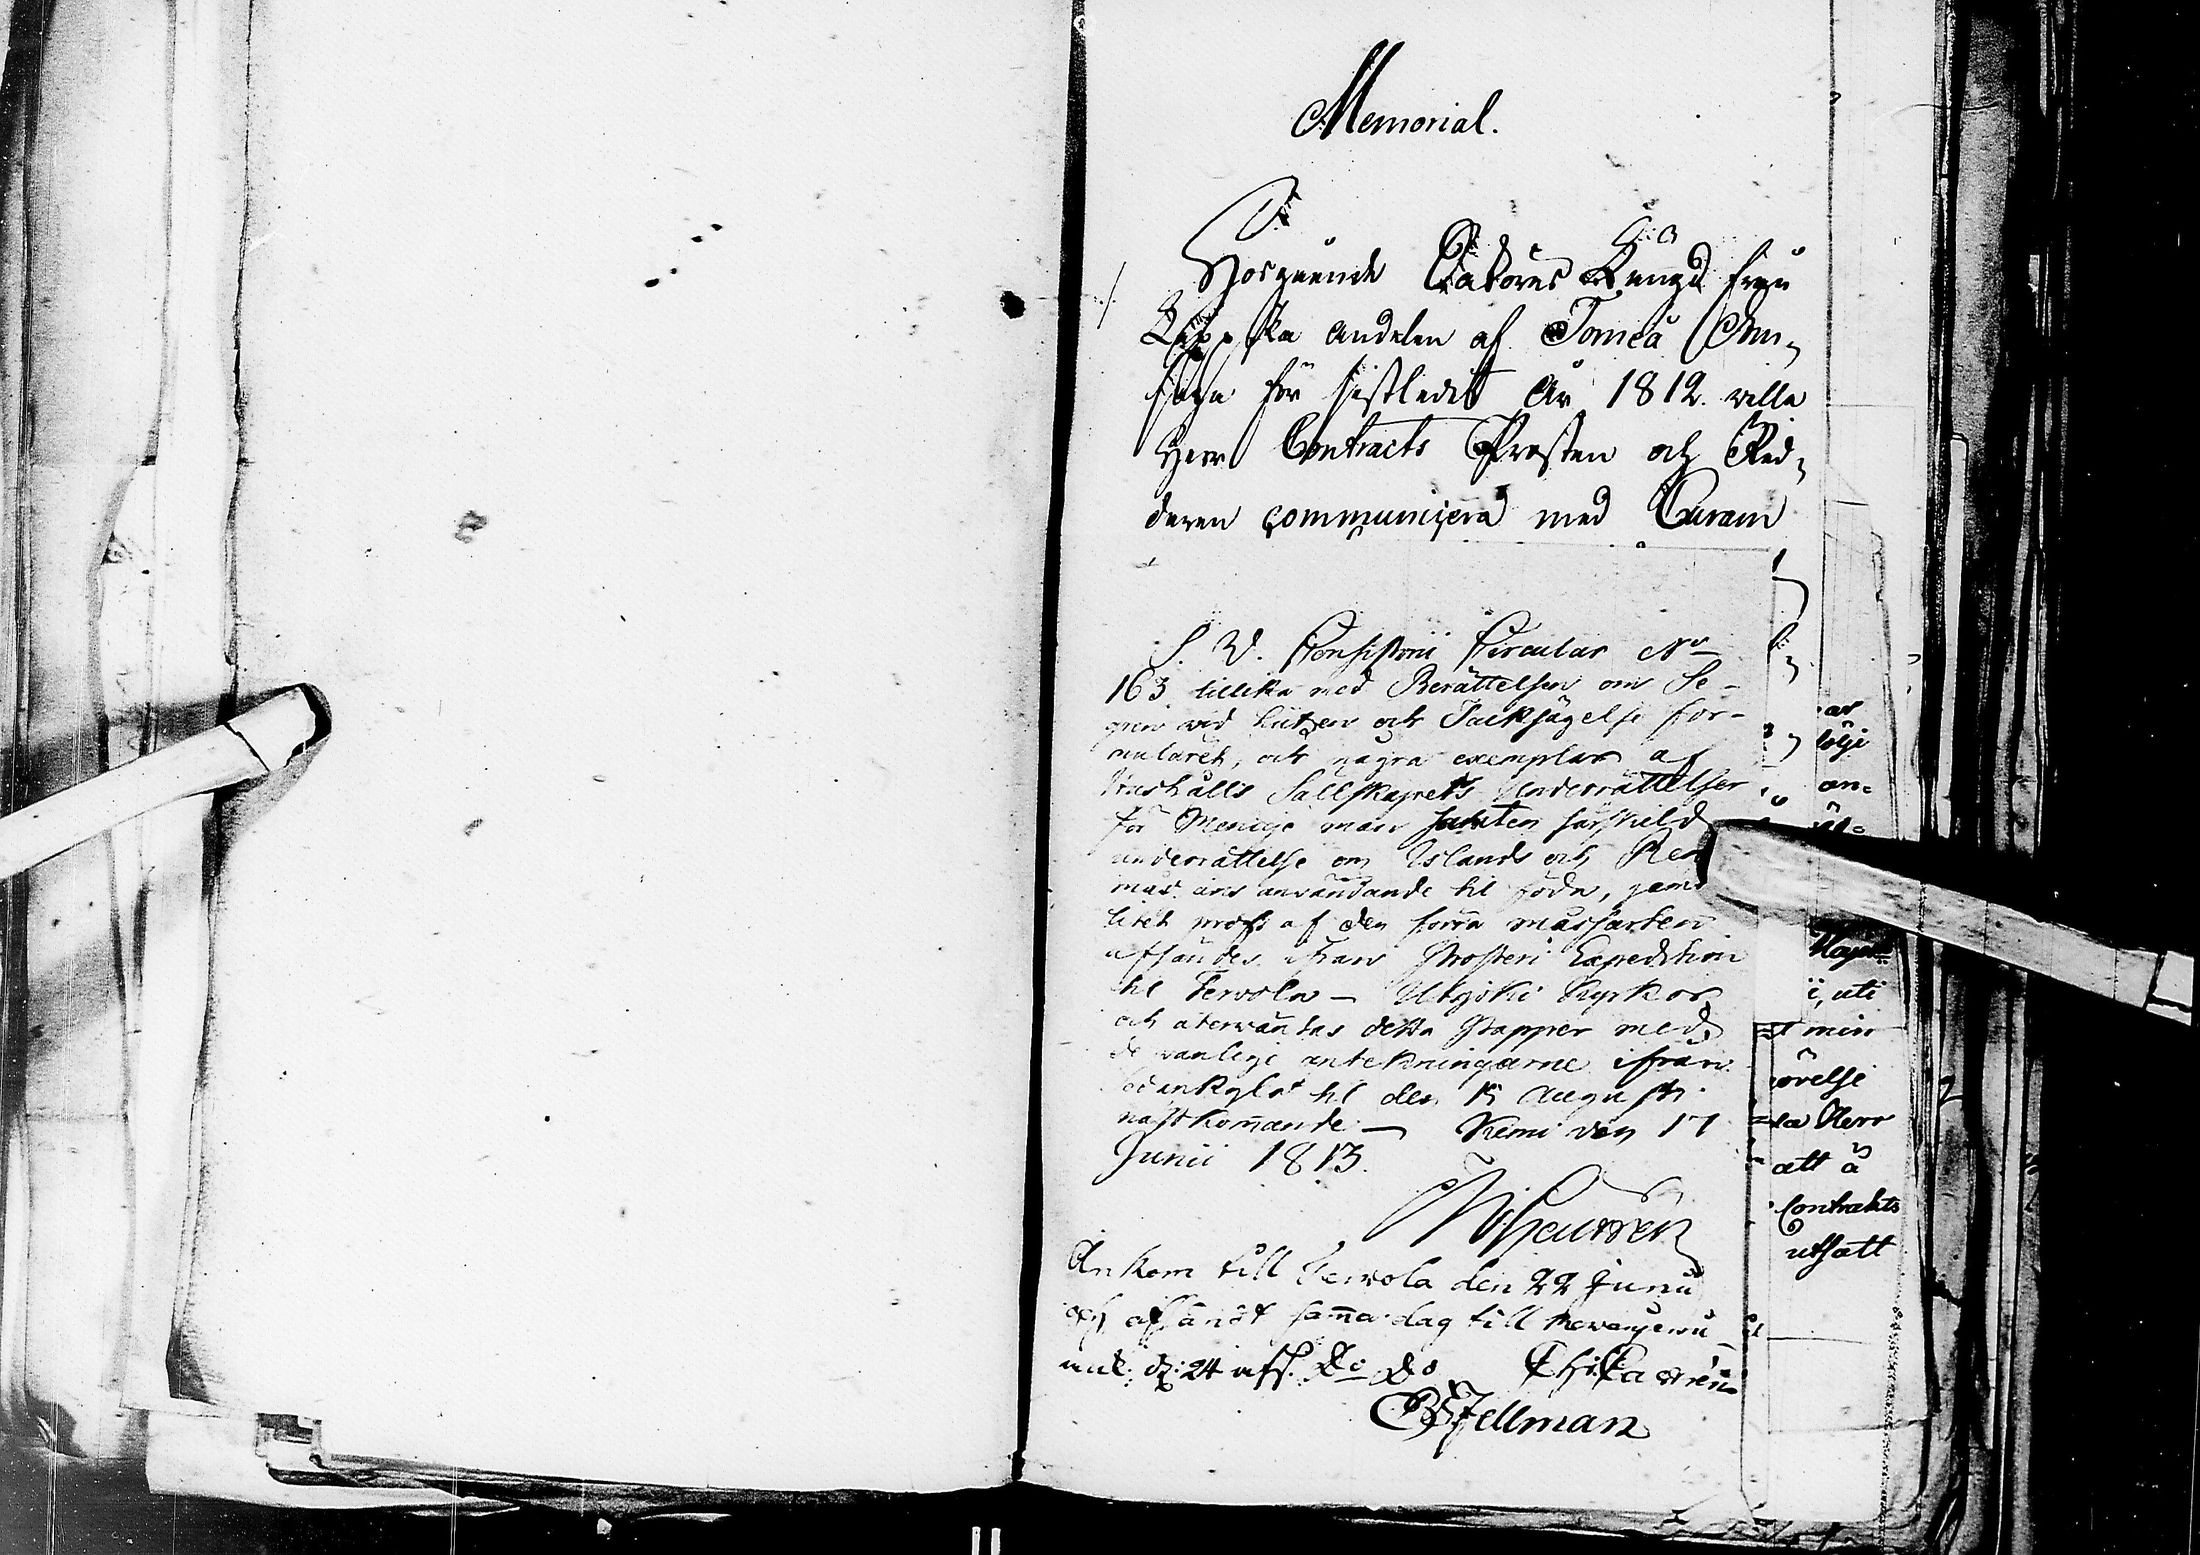 Memorial.
Hosgående Sakörs Längd från
Lappska andelen af Torneå Dom-
saga för sistledit År 1812. wille
Herr Contracts Prosten och Rid-
daren communicera med Curam
S. V. Consistorii Circular No
163 tillika med Berättelsen om Se-
gren vid Lützen och Tacksägelse for-
mularet, och några exemplar af
Hushålls Sällskapets Underrättelser
för Menige man samt en särskild
underrättelse om Islands och Ren
mås ans användande til föda, jemte
litet prof af den förra måssarten
afsändes ifrån Prosteri Expedition
til Tervola – Utsjoki Kyrkor
och återwäntas detta Papper med
de vanlige antekningarne ifrån
Sodankylä til den 15 Augusti
nästkommande – Kemi den 17
Junii 1813.
Ankom till Tervola den 22 Junii
och afsändt samma dag till Rovaniemi
ank. d: 24 afs. Do Do
Fellman
ar
följe
an-
i, uti
min
örelse
Herr
att å
Contrakts
utsatt